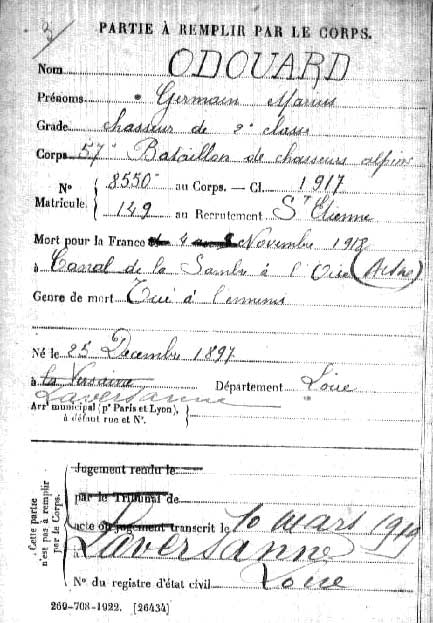 PARTIE À REMPLIR PAR LE CORPS.
Nom ODOUARD
Prénoms Germain Marius
Grade chasseur de 2e classe
Corps 57e Bataillon de chasseurs alpins
N° Matricule. { 8550 au Corps. — Cl. 1917
149 au Recrutement St Etienne
Mort pour la France le 4 Novembre 1918
à Canal de la Sambre à l'Oise (Aisne)
Genre de mort Tué à l'ennemi
Né le 25 Decembre 1897
à la Versanne Département Loire
Laversanne
Arrt municipal (pr Paris et Lyon),
à défaut rue et N°.
Cette partie n'est pas à remplir par le Corps.
Jugement rendu le
par le Tribunal de
acte ou jugement transcrit le 10 mars 1919
à Laversanne
N° du registre d'état civil Loire
260-708-1922. [26434]